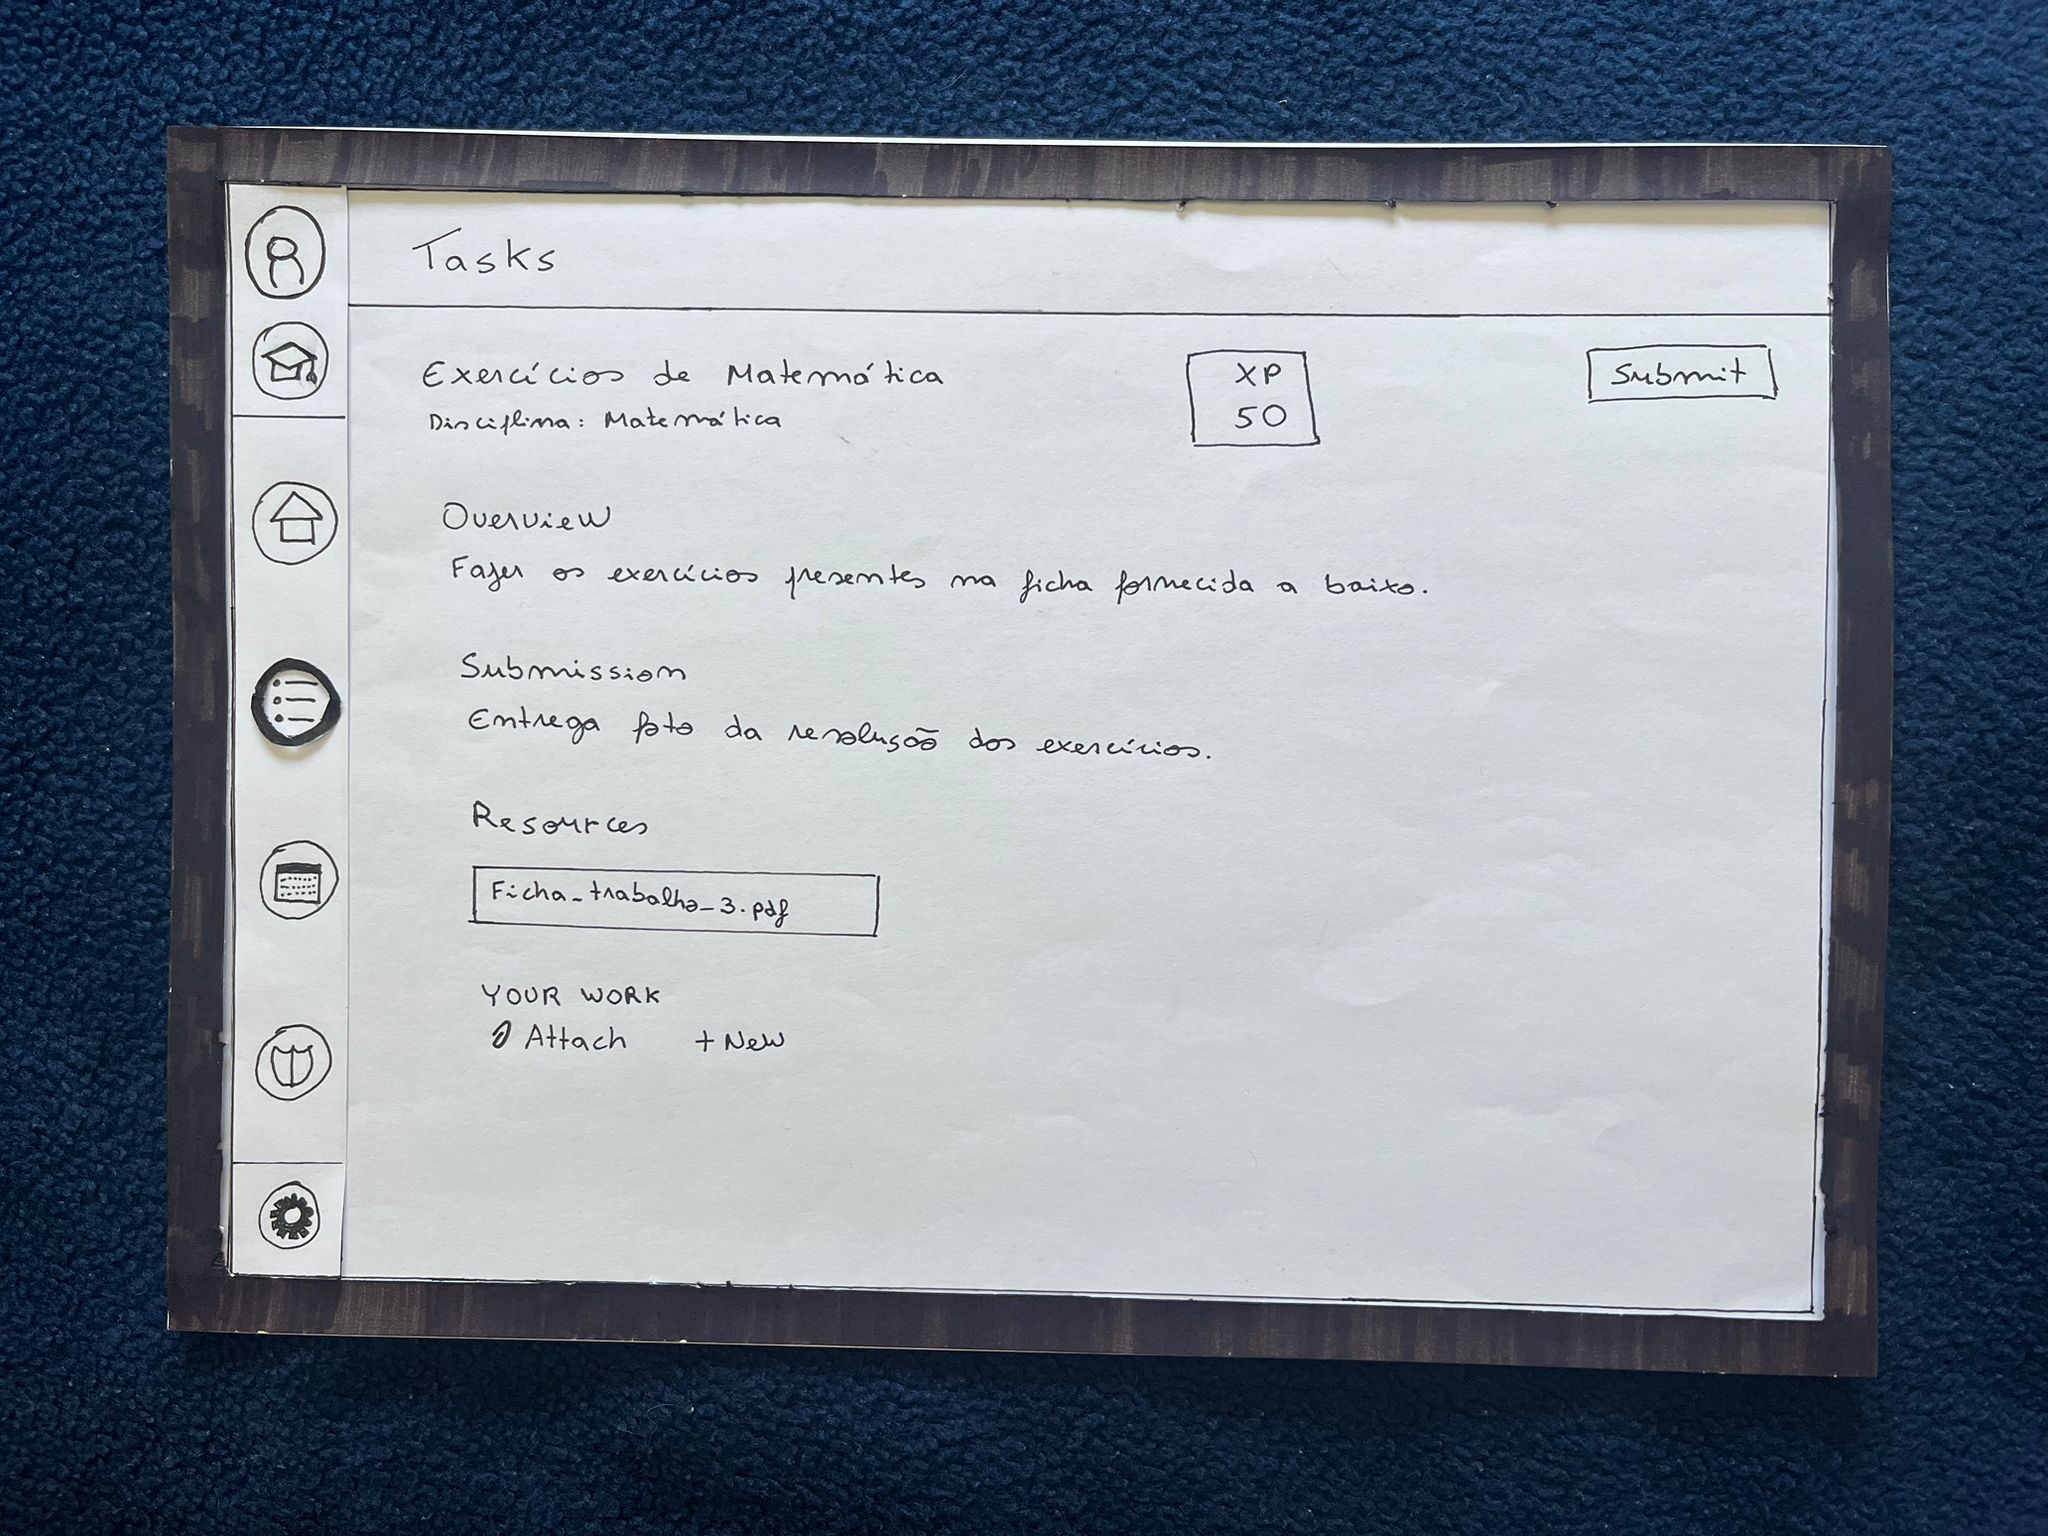 Tasks
Exercícios de Matemática
Disciplina: Matemática
XP
50
Submit
Overview
Fazer os exercícios presentes na ficha fornecida a baixo.
Submission
Entrega foto da resolução dos exercícios.
Resources
Ficha_trabalho_3.pdf
YOUR WORK
Attach +New